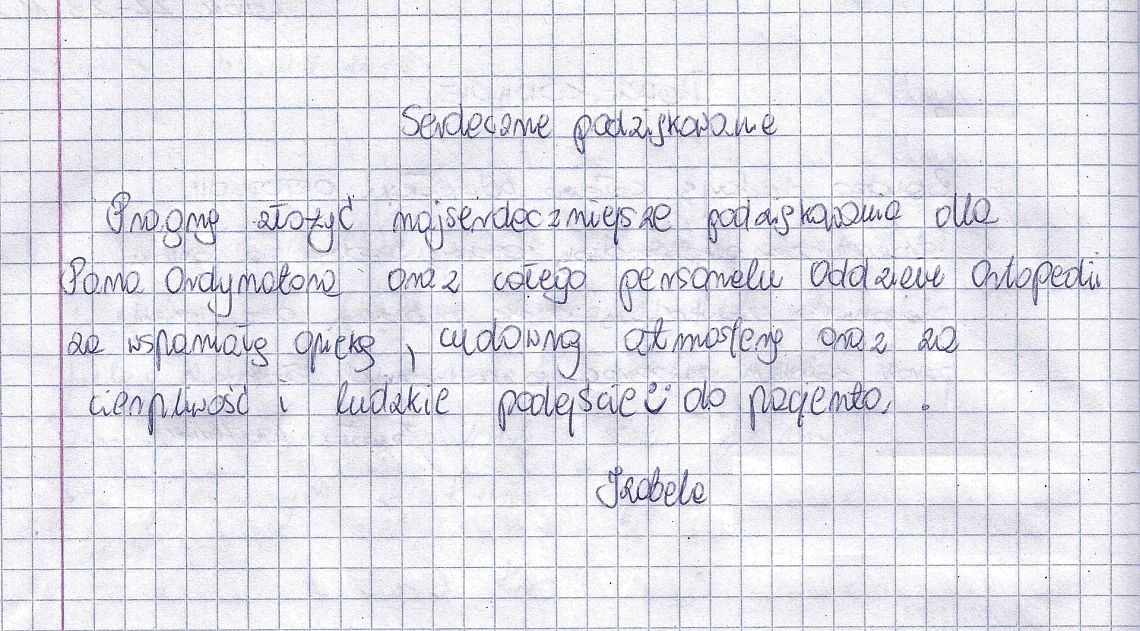 Serdeczne podziękowanie
Pragnę złożyć najserdeczniejsze podziękowania dla
Pana Ordynatora oraz całego personelu Oddziału Ortopedii
za wspaniałą opiekę, cudowną atmosferę oraz za
cierpliwość i ludzkie podejście do pacjenta.
Izabela